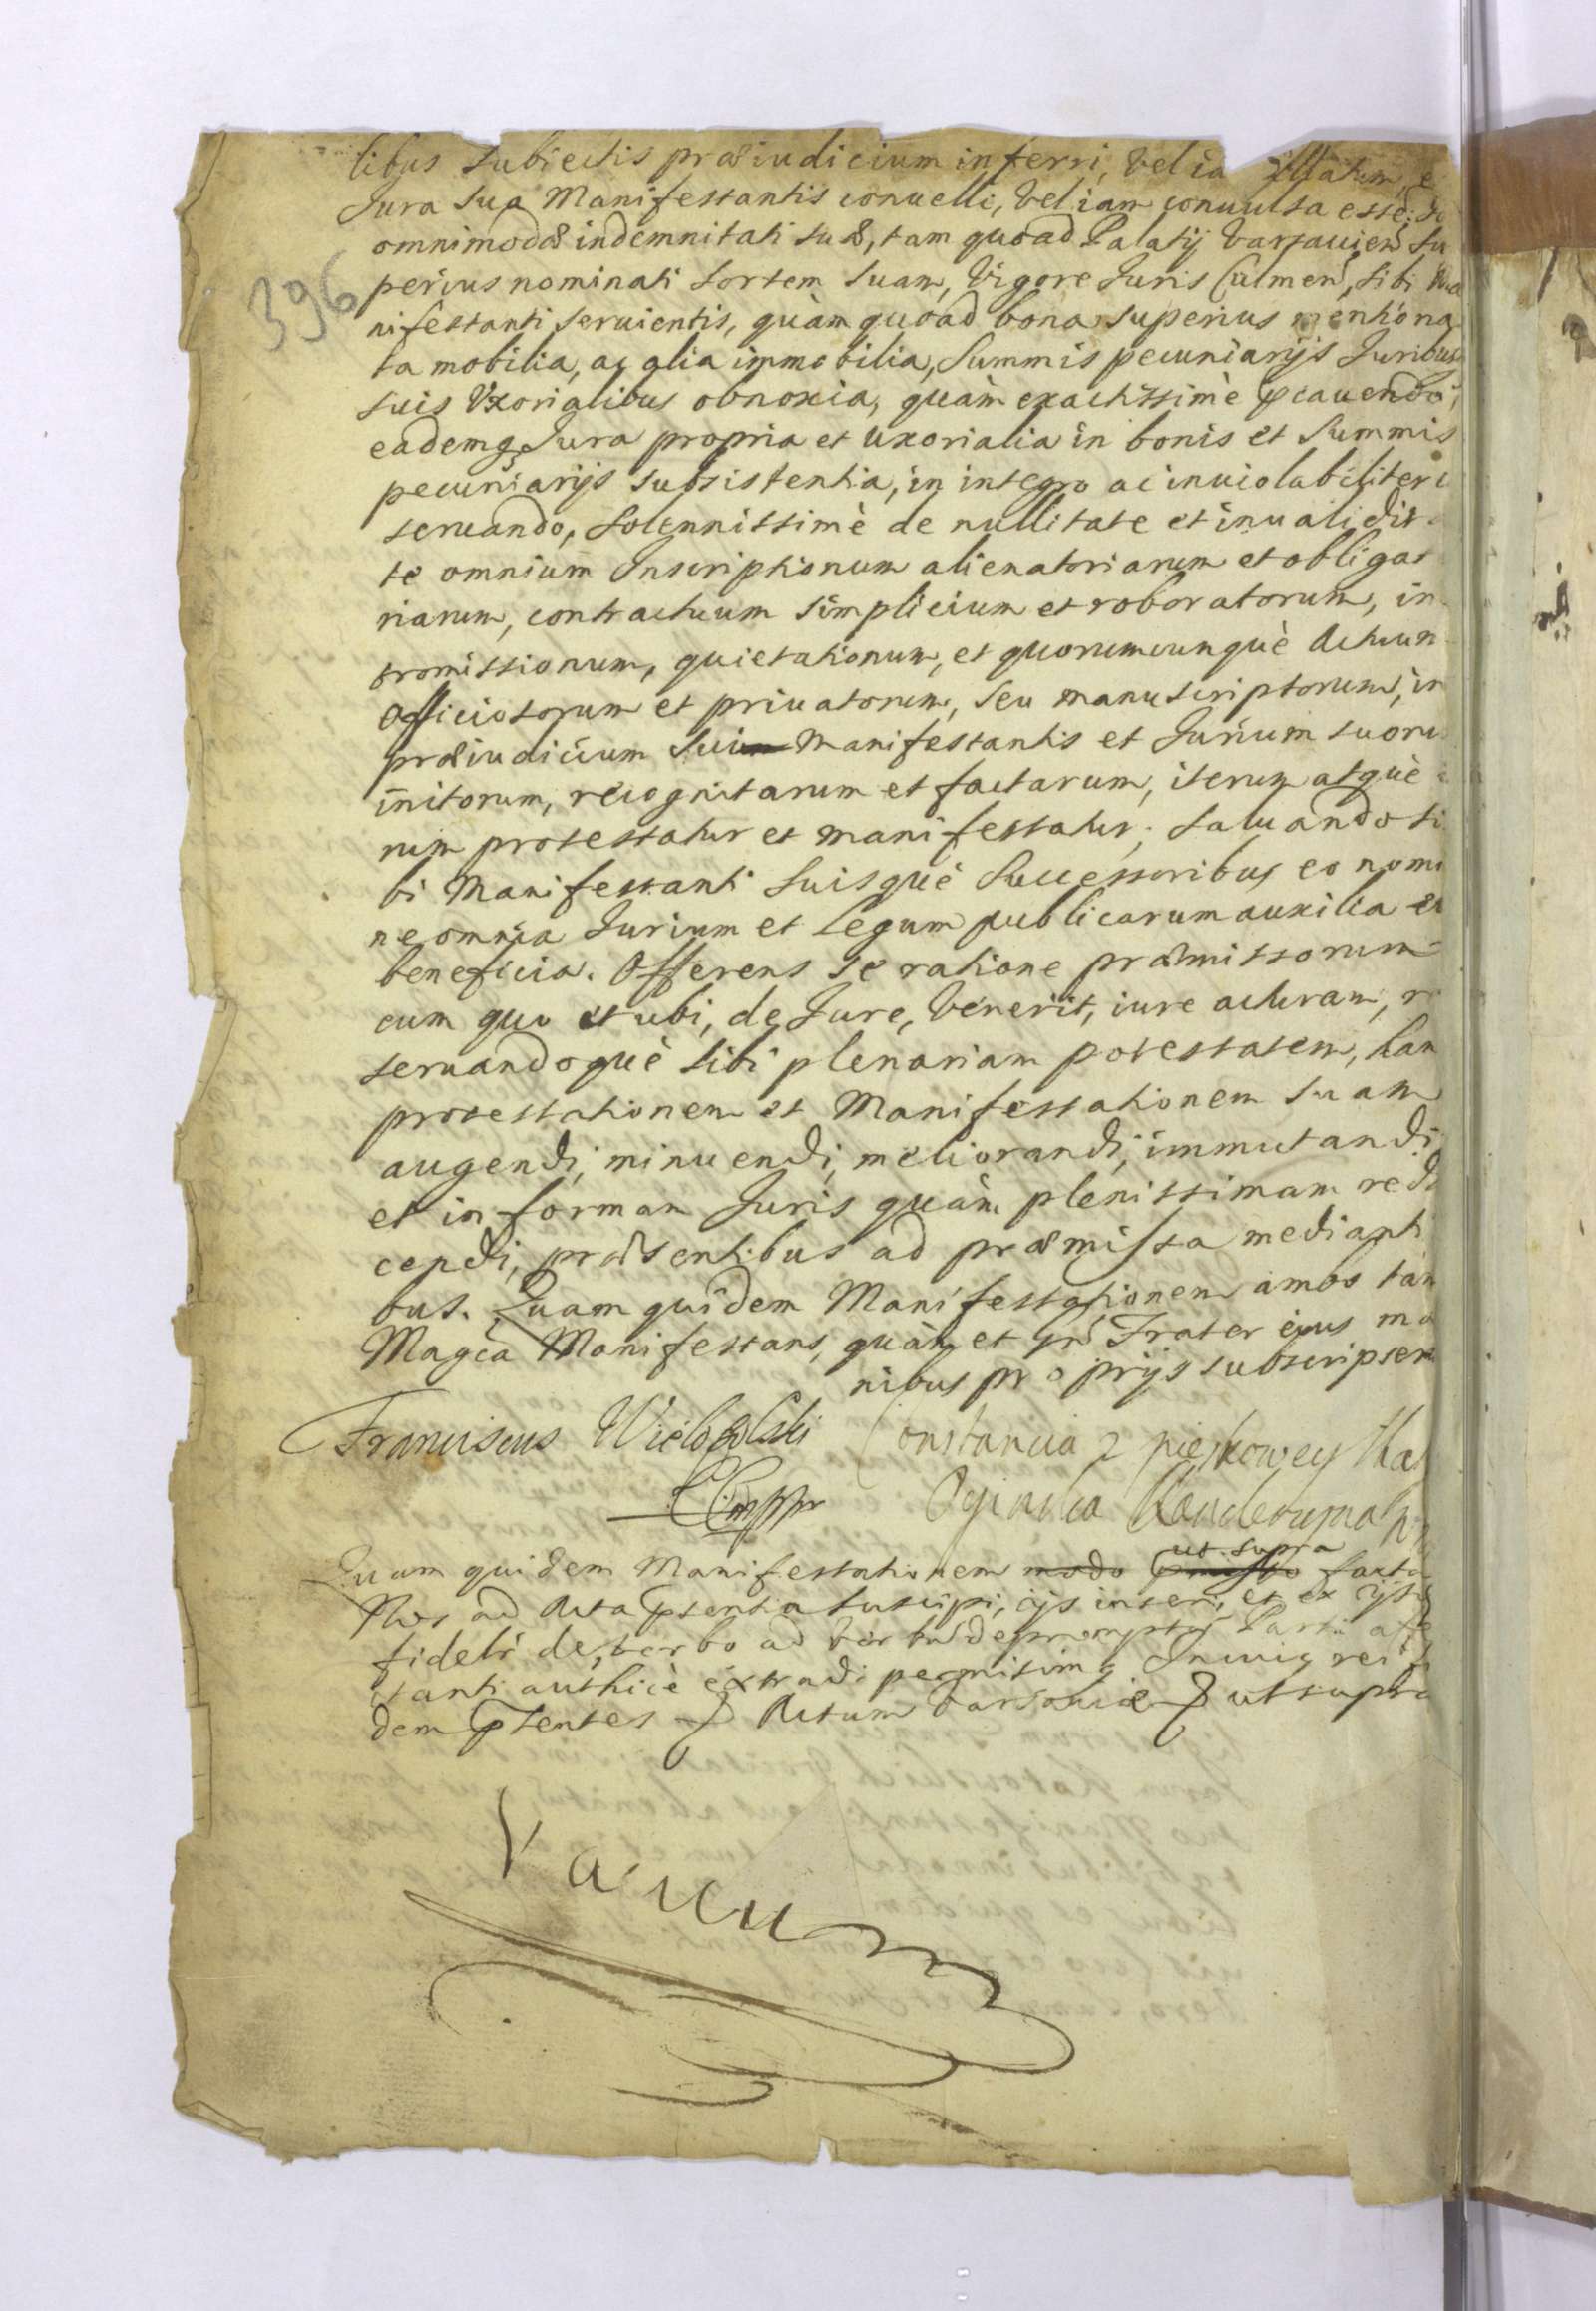 libus subiectis præiudicium inferri, vel ia illatum, e
Jura sua Manifestantis conuelli, vel iam conuulsa esse; Jo
omnimodæ indemnitati suæ, tam quoad Palatij Varsauien su
396
perius nominati sortem suam, vigore Juris Culmen, sibi Ma
nifestanti seruientis, quàm quoad bona superius mentiona
ta mobilia, ac alia immobilia, Summis pecuniarijs Juribus
suis Vxorialibus obnoxia, quàm exactissimè pcauendo,
eademq Jura propria et uxorialia in bonis et Summis
pecuniarijs subsistentia, in integro ac inuiolabiliter c
seruando, solennissimè de nullitate et inualidit
te omnium Inscriptionum alienatoriarum et obligat
riarum, contractuum simplicium et roboratorum, in
tromissionum, quietationum, et quorumcunquè Actuun
Officiosorum et priuatorum, seu manuscriptorum, in
præiudicium sui Manifestantis et Jurium suoru
initorum, recognitarum et factarum, iterum atquè i
rum protestatur et manifestatur; saluando si
bi Manifestanti suisquè Successoribus eo nomi
ne omnia Jurium et Legum publicarum auxilia et
beneficia. Offerens se ratione præmissorum
cum quo et ubi, de Jure, venerit, iure acturam, r
seruandoquè sibi plenariam potestatem, han
protestationem et Manifestationem suam
augendi, minuendi, meliorandi, immutandi
et in formam Juris quàm plenissimam redi
cendi, præsentibus ad præmissa medianti
bus. Quam quidem Manifestationem ambo tam
Magca Manifestans, quàm et Gns Frater ejus ma
nibus proprijs subscripser
Franciscus Wielopolski Constancia z pieskowey Ska
CCmppr Oginska
Quam quidem Manifestationem modo pmisso ut supra facta
Nos ad Acta psentia suscipi, ijs inseri, et ex ijsd
fideli de verbo ad verbu depromptu Parti affe
ctanti authicè extradi permisimq. In cuiq rei f
dem psentes Actum Varsouiæ ut supra
Vacuum